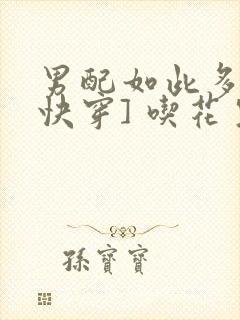 男配如此多
快穿] 喫花
孫寶寶